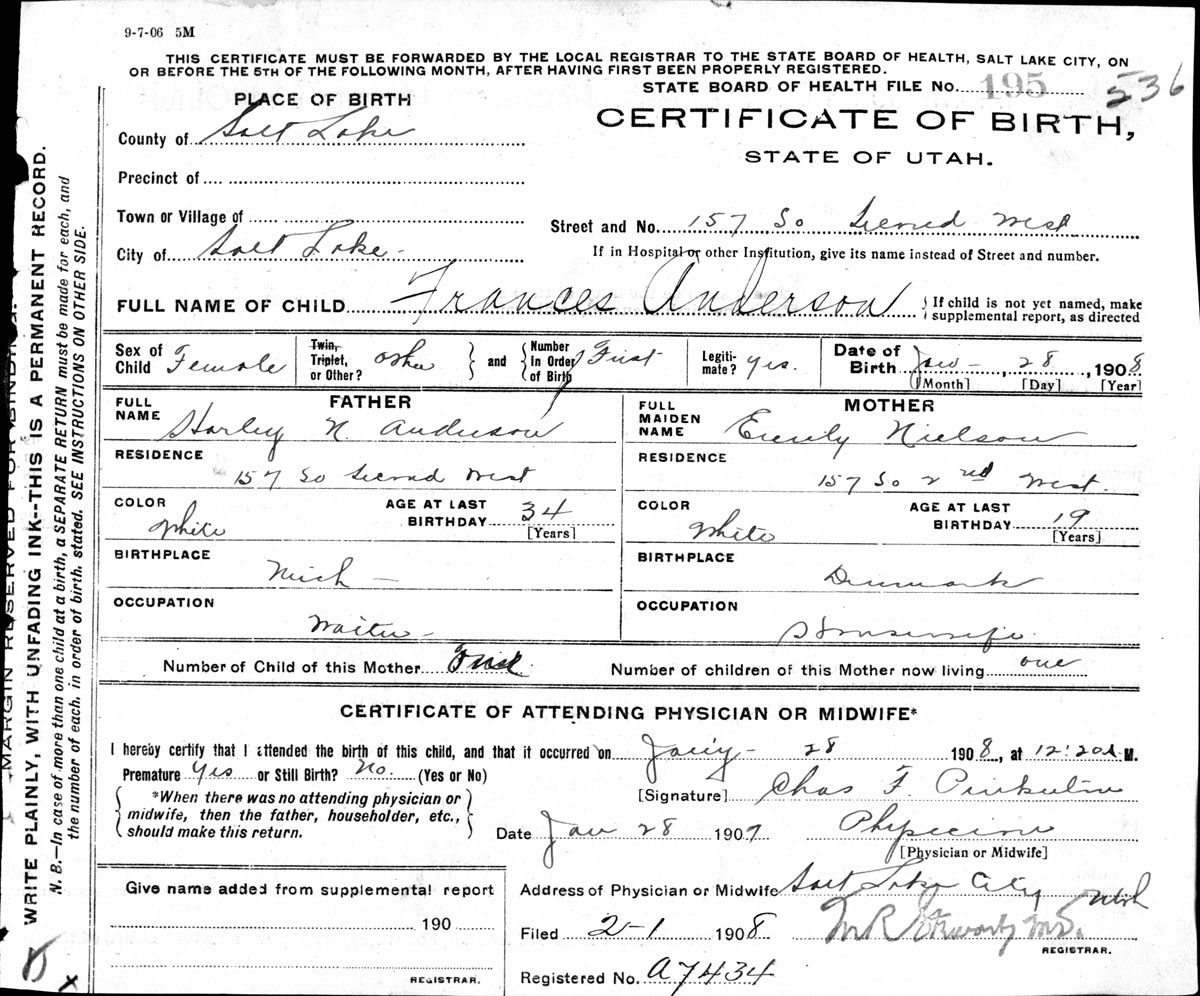 9-7-06 5M
THIS CERTIFICATE MUST BE FORWARDED BY THE LOCAL REGISTRAR TO THE STATE BOARD OF HEALTH, SALT LAKE CITY, ON
OR BEFORE THE 5TH OF THE FOLLOWING MONTH, AFTER HAVING FIRST BEEN PROPERLY REGISTERED.
STATE BOARD OF HEALTH FILE No. 195 536
PLACE OF BIRTH
CERTIFICATE OF BIRTH,
STATE OF UTAH.
County of Salt Lake
Precinct of
Town or Village of
Street and No. 157 So Second West
City of Salt Lake -
If in Hospital or other Institution, give its name instead of Street and number.
FULL NAME OF CHILD Frances Anderson { If child is not yet named, make
supplemental report, as directed
Sex of Child Female
Twin, Triplet, or Other? other } and { Number in Order of Birth First
Legiti-mate? Yes.
Date of Birth Jan - , 28 , 1908
[Month] [Day] [Year]
FATHER
FULL NAME Harley N Anderson
MOTHER
FULL MAIDEN NAME Emily Nielson
RESIDENCE
157 So Second West
RESIDENCE
157 So 2nd West.
COLOR White
AGE AT LAST BIRTHDAY 34
[Years]
COLOR White
AGE AT LAST BIRTHDAY 19
[Years]
BIRTHPLACE
Mich -
BIRTHPLACE
Denmark
OCCUPATION
Waiter -
OCCUPATION
Housewife
Number of Child of this Mother First
Number of children of this Mother now living one
CERTIFICATE OF ATTENDING PHYSICIAN OR MIDWIFE*
I hereby certify that I attended the birth of this child, and that it occurred on Jany - 28 1908, at 12:20A M.
Premature Yes or Still Birth? No. (Yes or No)
*When there was no attending physician or
midwife, then the father, householder, etc.,
should make this return.
[Signature] Chas F.
Date Jan 28 1907 Physician
[Physician or Midwife]
Give name added from supplemental report
190
REGISTRAR.
Address of Physician or Midwife Salt Lake City Utah
Filed 2-1 1908 M.D.
REGISTRAR.
Registered No. A7434
MARGIN RESERVED FOR BINDING.
WRITE PLAINLY, WITH UNFADING INK--THIS IS A PERMANENT RECORD.
N. B.—In case of more than one child at a birth, a SEPARATE RETURN must be made for each, and
the number of each, in order of birth, stated. SEE INSTRUCTIONS ON OTHER SIDE.
x